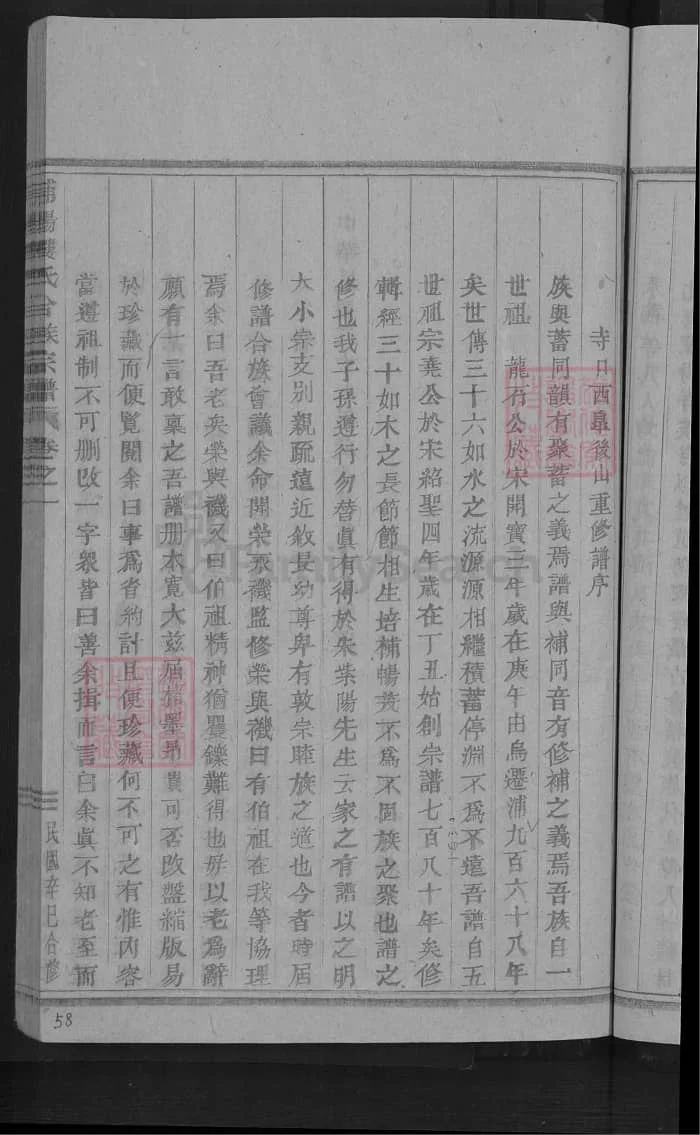 寺口西臯後山重修譜序
族與蓄同韻有聚蓄之義焉譜與補同音有修補之義焉吾族自一
世祖 龍石公於宋開寶三年歲在庚午由烏遷浦九百六十八年
矣世傳三十六如水之流源源相繼積蓄停淵不爲不遠吾譜自五
世祖宗堯公於宋紹聖四年歲在丁丑始創宗譜七百八十年矣修
輯經三十如木之長節節相生培補暢茂不爲不固族之聚也譜之
修也我子孫遵行勿替眞有得於朱紫陽先生云家之有譜以之明
大小宗支別親疏遠近敘長幼尊卑有敦宗睦族之道也今者時屆
修譜合族會議余命開榮永禨監修榮與禨曰有伯祖在我等協理
焉余曰吾老矣榮與禨又曰伯祖精神猶矍鑠難得也毋以老爲辭
願有一言敢稟之吾譜册本寬大兹屆楮墨昂貴可否改盤縮版易
於珍藏而便覧閱余曰事爲省約計且便珍藏何不可之有惟內容
當遵祖制不可删改一字衆皆曰善余揖而言曰余眞不知老至而
浦陽 氏合族宗譜 卷之一
民國辛巳合修
58